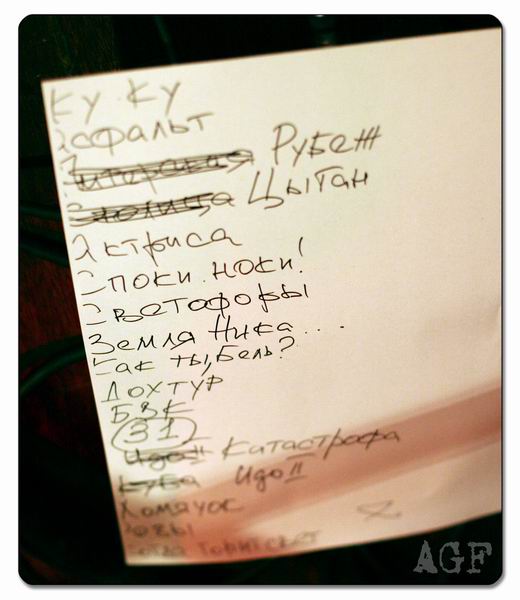 Ку. Ку
Асфальт
Рубеж
Цыган
Актриса
Споки. ноки!
Светофоры
Земля Ника...
Как ты, Бель?
Дохтур
БЗК
(31)
Идо II Катастрофа
Куба Идо II
Хомячок
Розы
горит свет
AGF